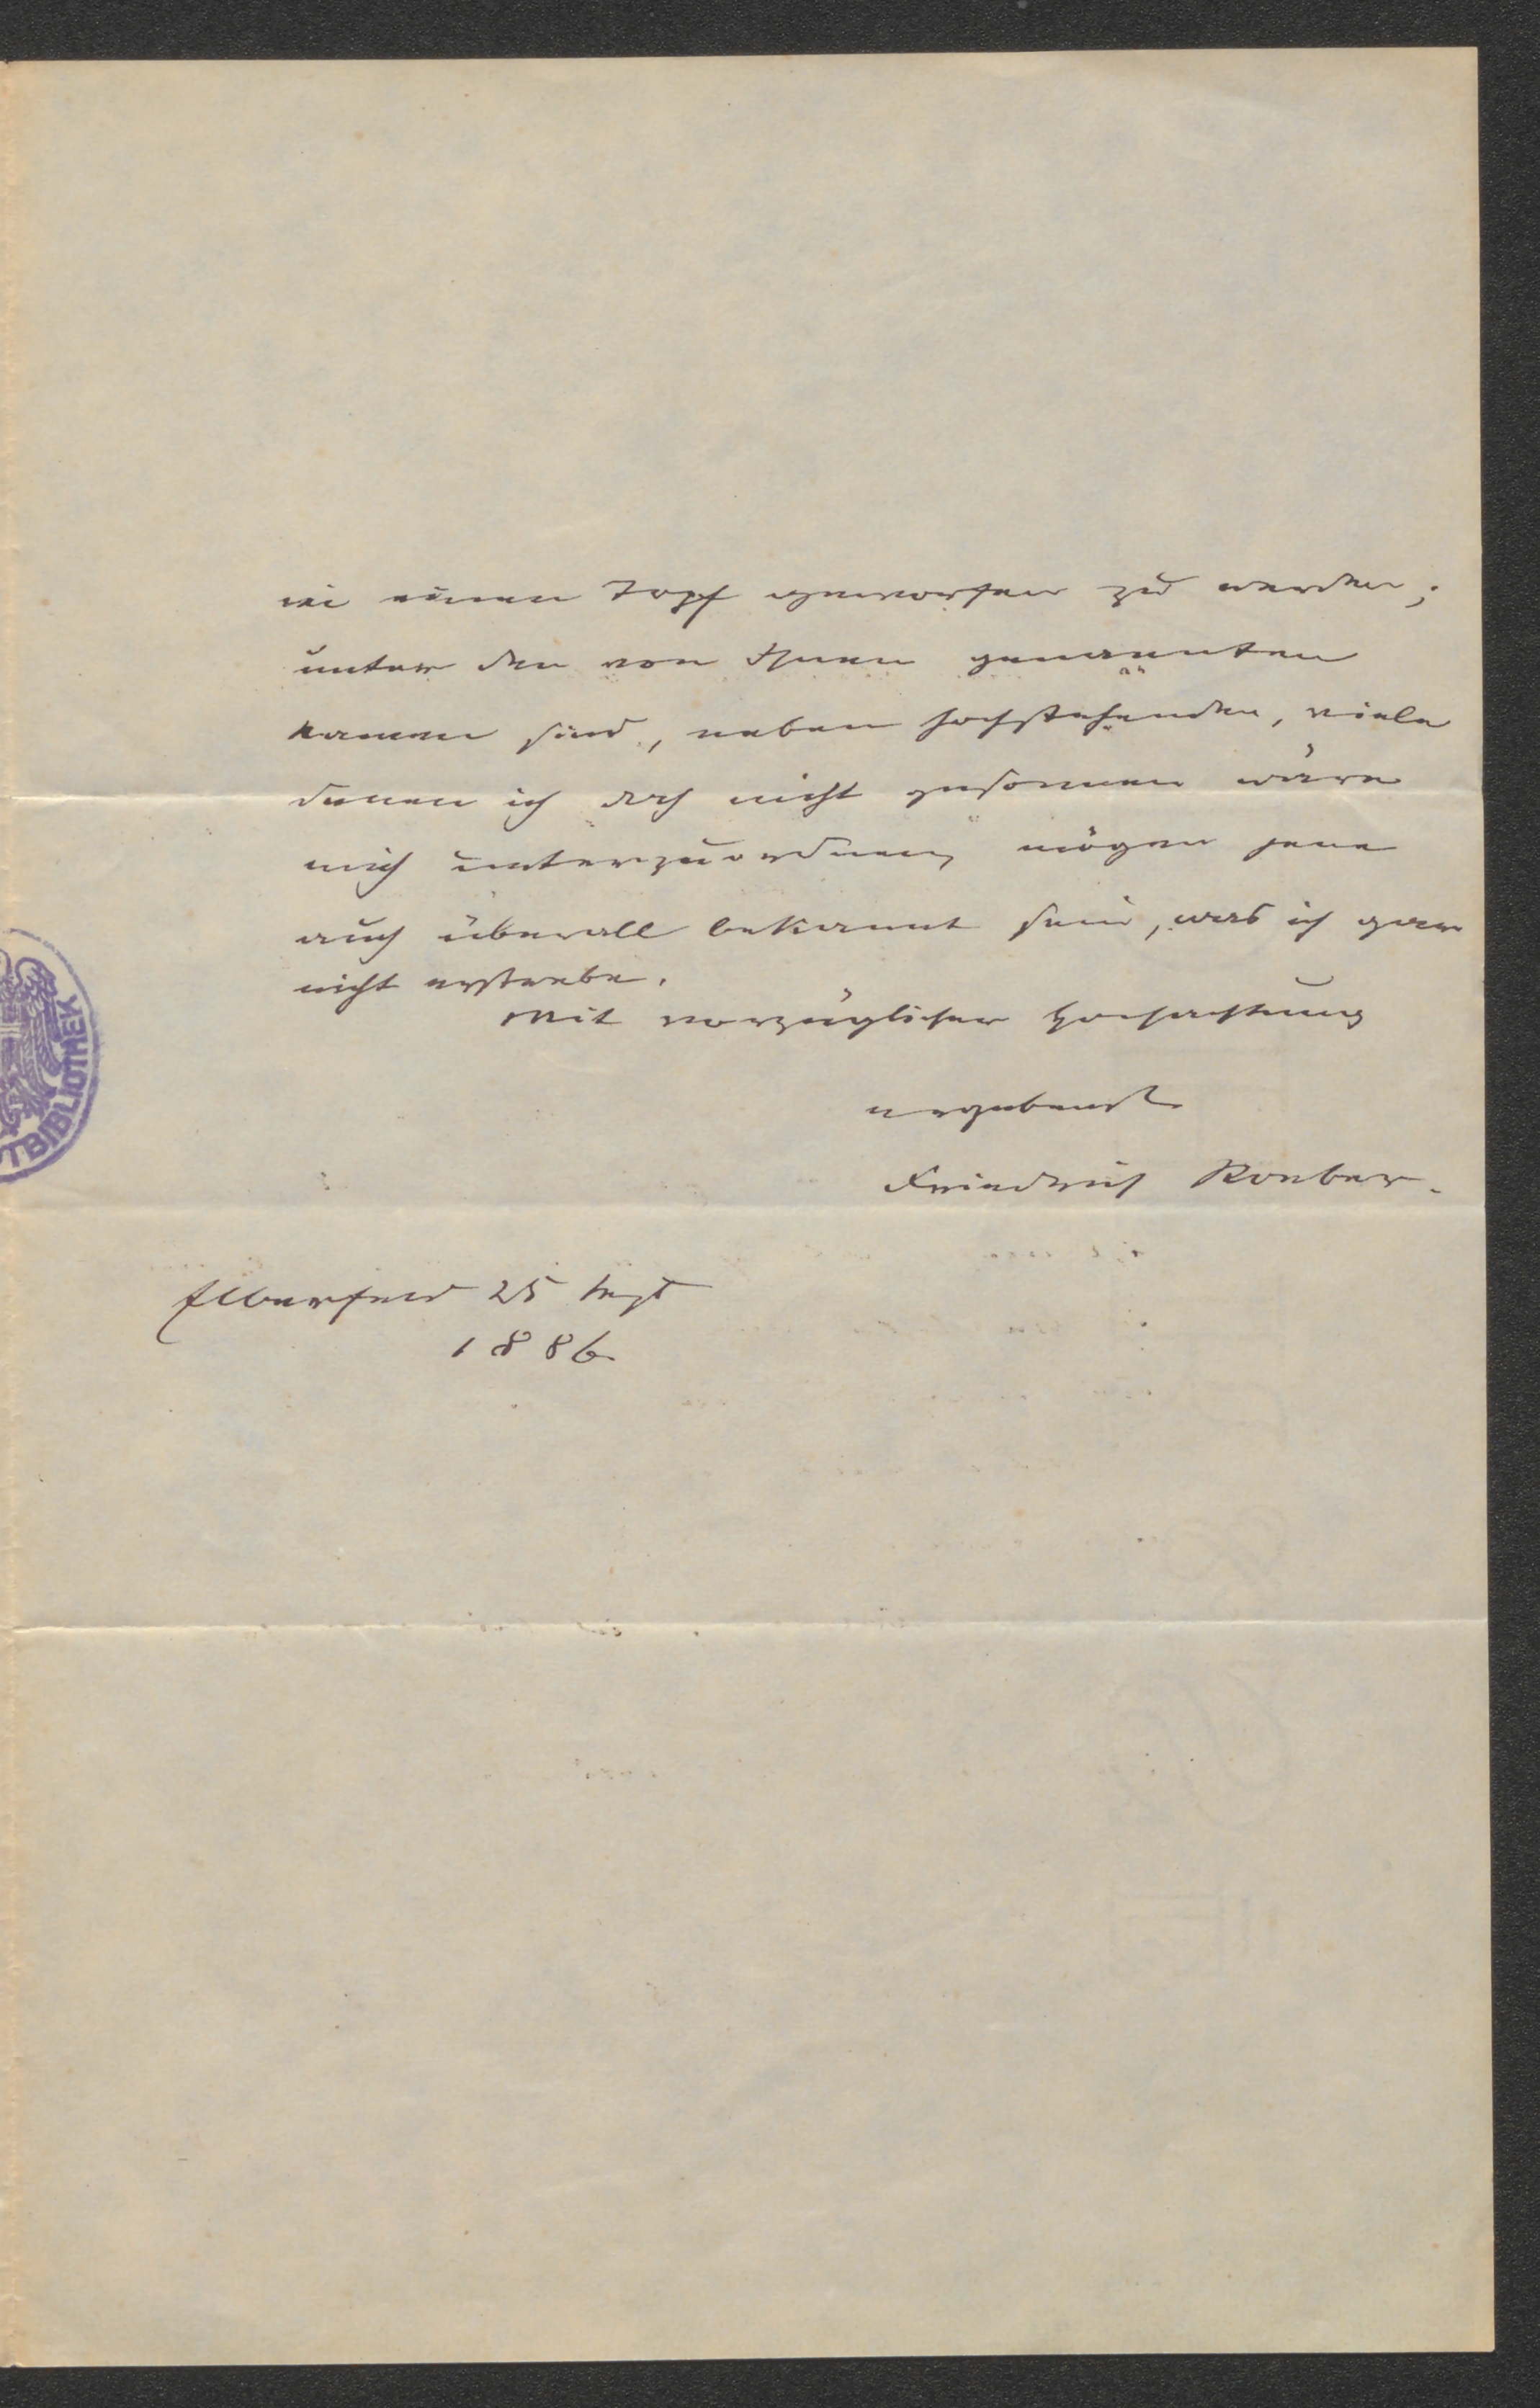 in einen Topf geworfen zu werden;
unter den von Ihnen genannten
Namen sind, neben hochstehenden, viele
denen ich doch nicht gesonnen wäre
mich unterzuordnen, mögen jene
auch überall bekannt sein, was ich gar
nicht erstrebe.
Mit vorzüglicher Hochachtung
ergebenst
Friedrich Roeber.
Elberfeld 25 Sept
1886
TBIBLIOTHEK